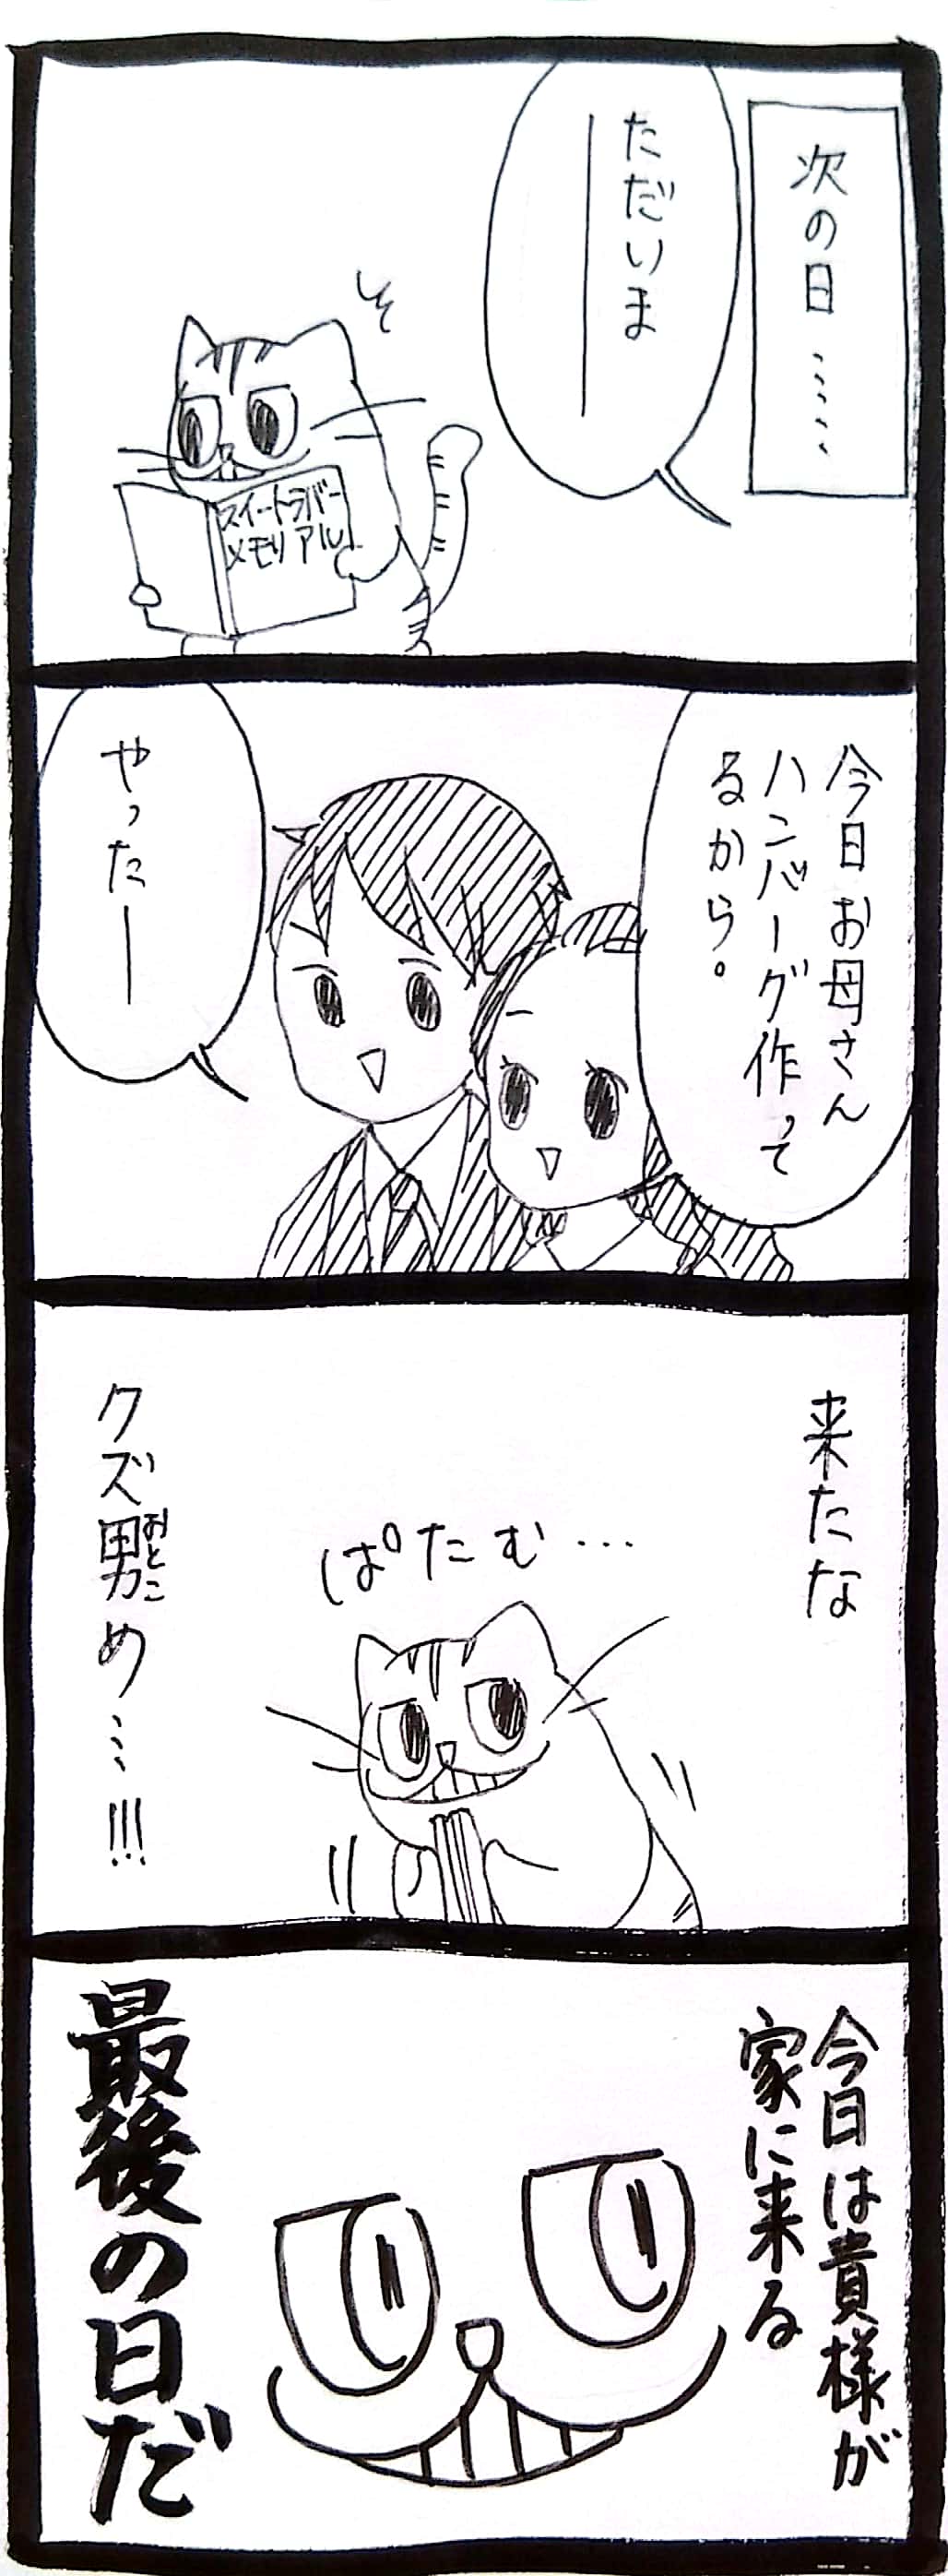 次の日……
ただいま
――
そ
スイートラバー
メモリアル
今日お母さん
ハンバーグ作って
るから。
やったー
来たな
ぱたむ…
クズ男め…!!!
おとこ
今日は貴様が
家に来る
最後の日だ